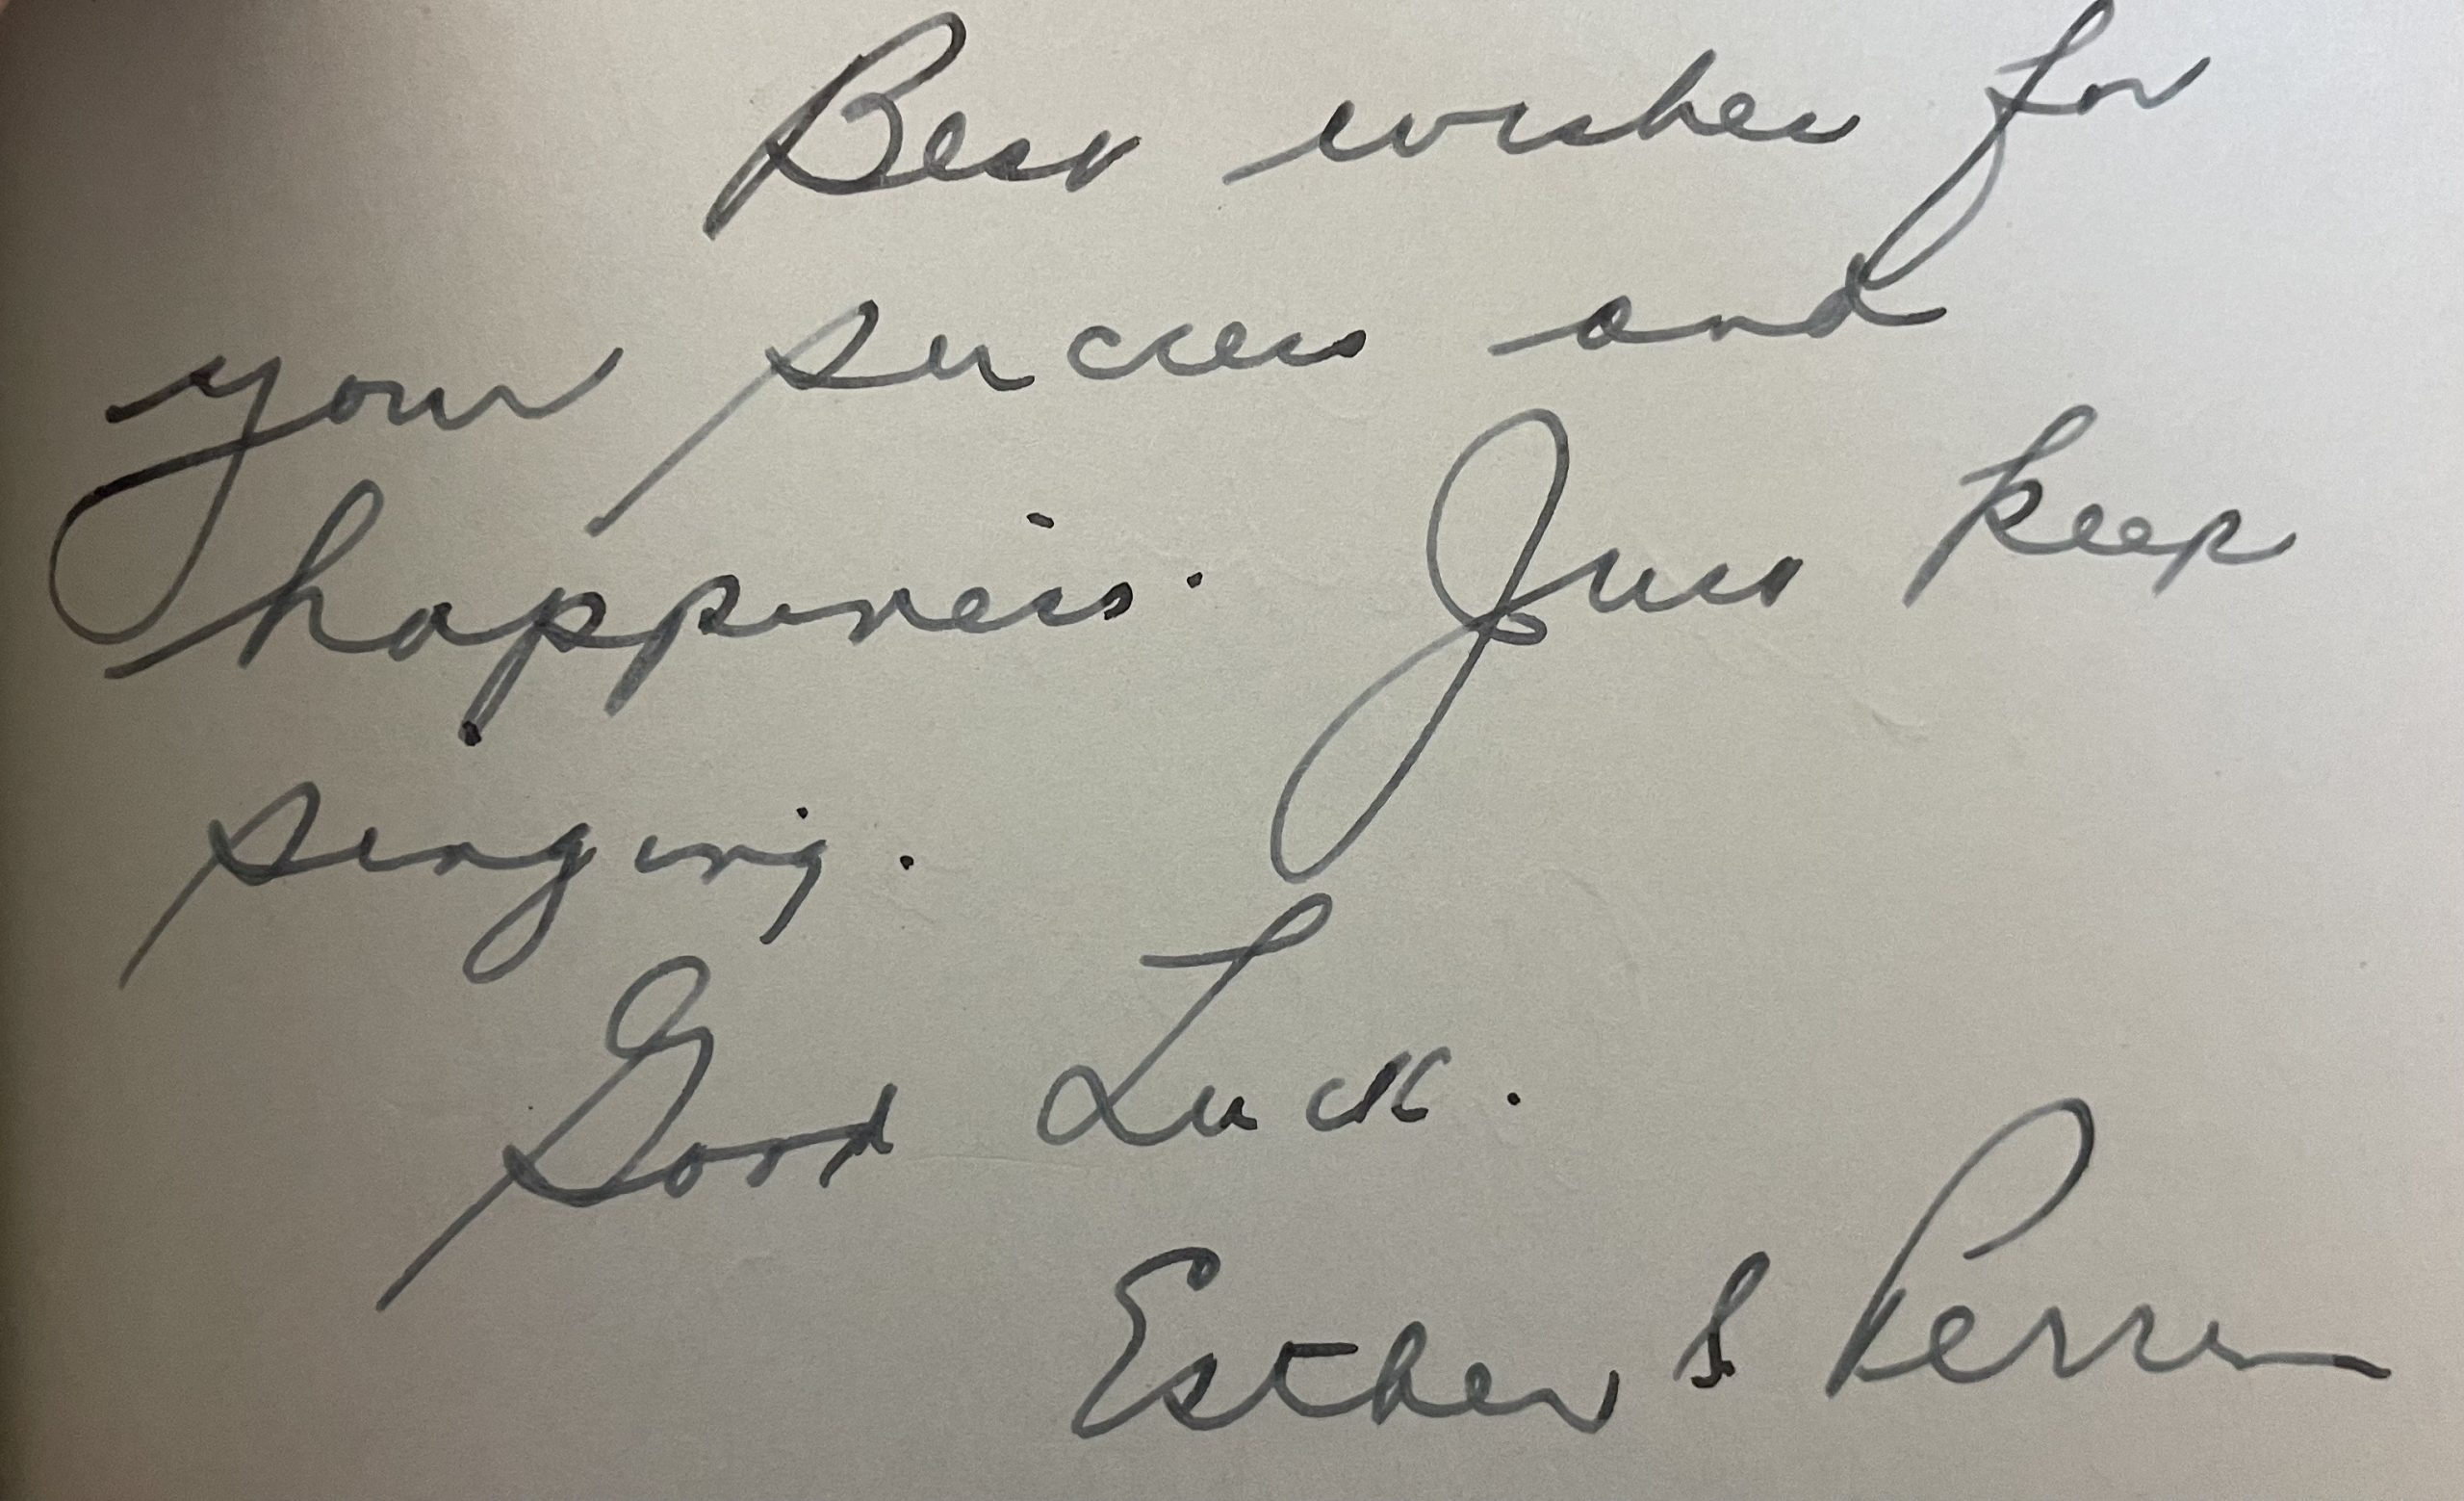 Best wishes for
your success and
happiness. Just keep
singing.
Good Luck.
Esther S